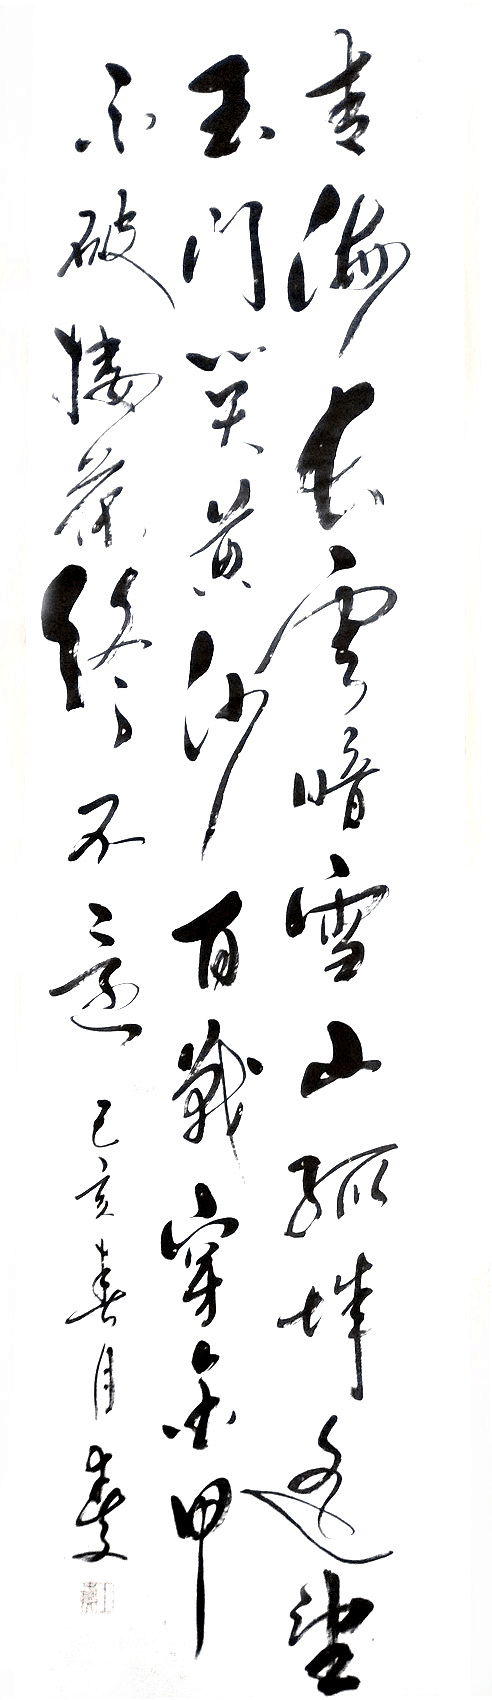 青海长雲暗雪山孤城遥望
玉门关黄沙百戰穿金甲
不破楼蘭终不還 己亥春月